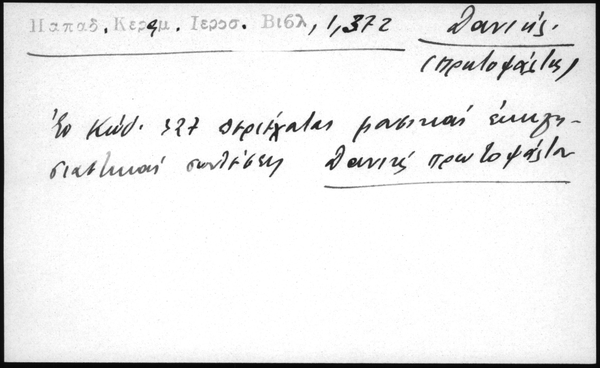 Παπαδ. Κεραμ. Ιεροσ. Βιβλ, 1, 372
Δανιήλ.
(πρωτοψάλτης)
Ἐν Κώδ. 427 περιέχονται μουσικαί ἐκκλη-
σιαστικαί συνθέσεις Δανιήλ πρωτοψάλτου